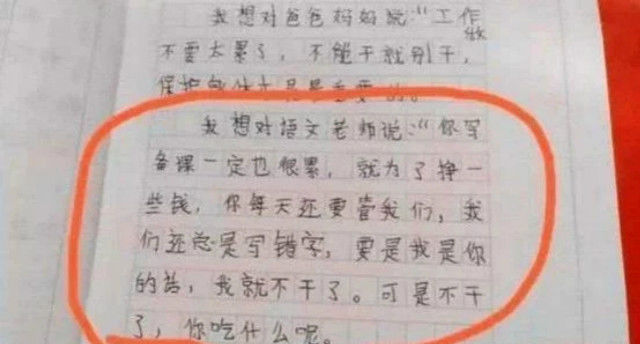 我想对爸爸妈妈说:“工作
做
不要太累了,不能干就别干,
保护身体才是最重要的。
我想对语文老师说:“你写
备课一定也很累,就为了挣一
些钱,你每天还要管我们,我
们还总是写错字,要是我是你
的话,我就不干了。可是不干
了,你吃什么呢。